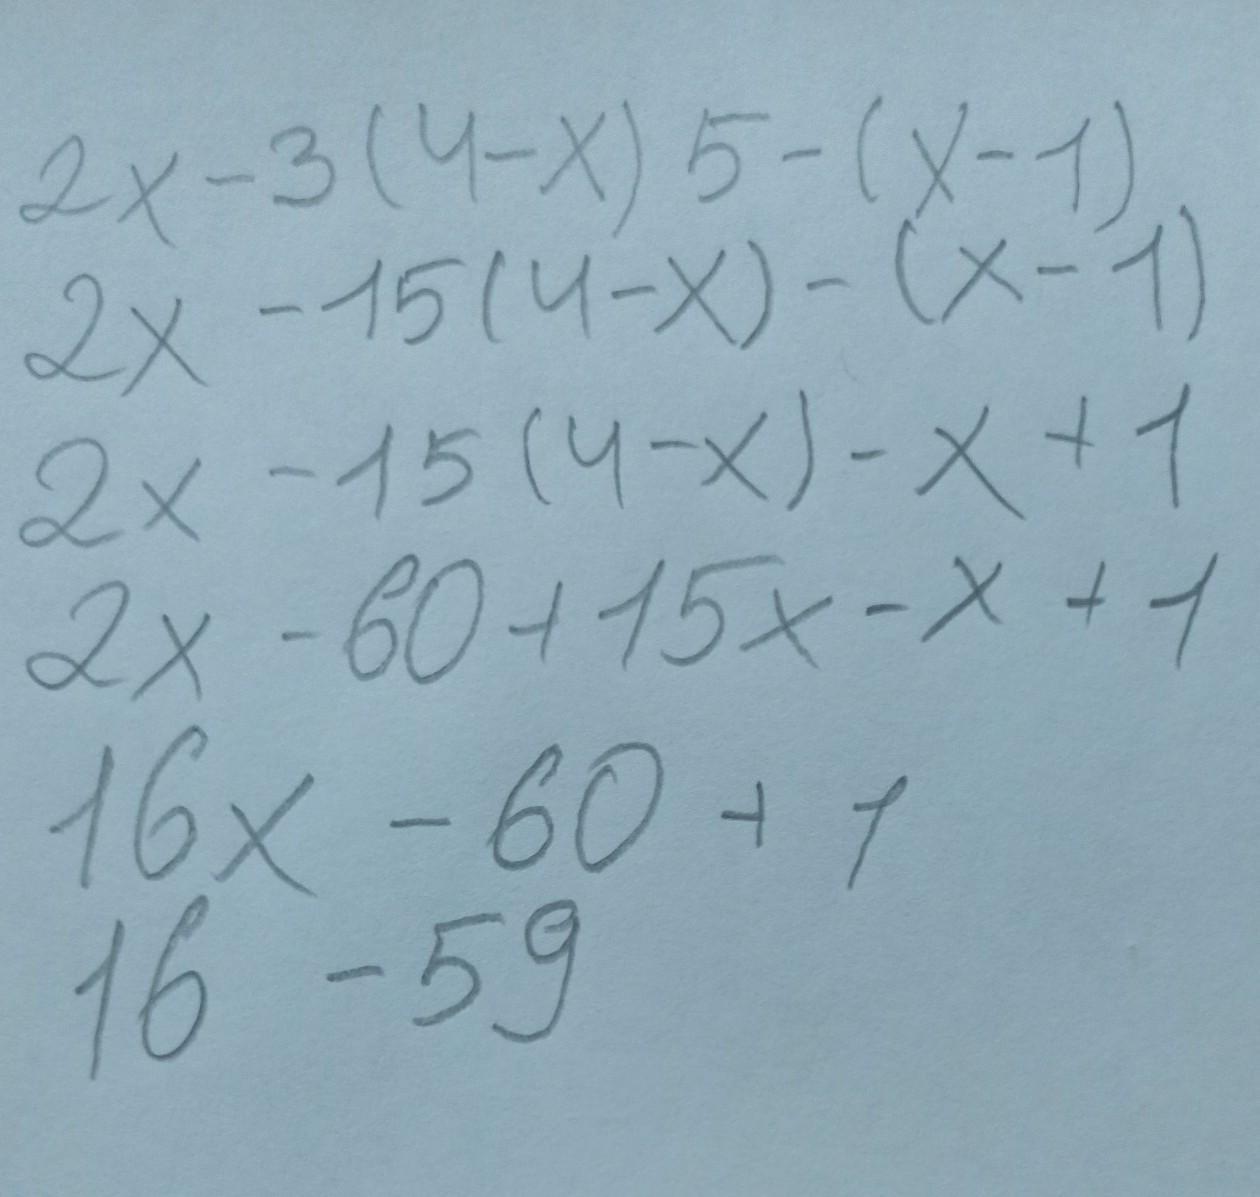 2x-3(4-x)5-(x-1)
2x-15(4-x)-(x-1)
2x-15(4-x)-x+1
2x-60+15x-x+1
16x-60+1
16-59